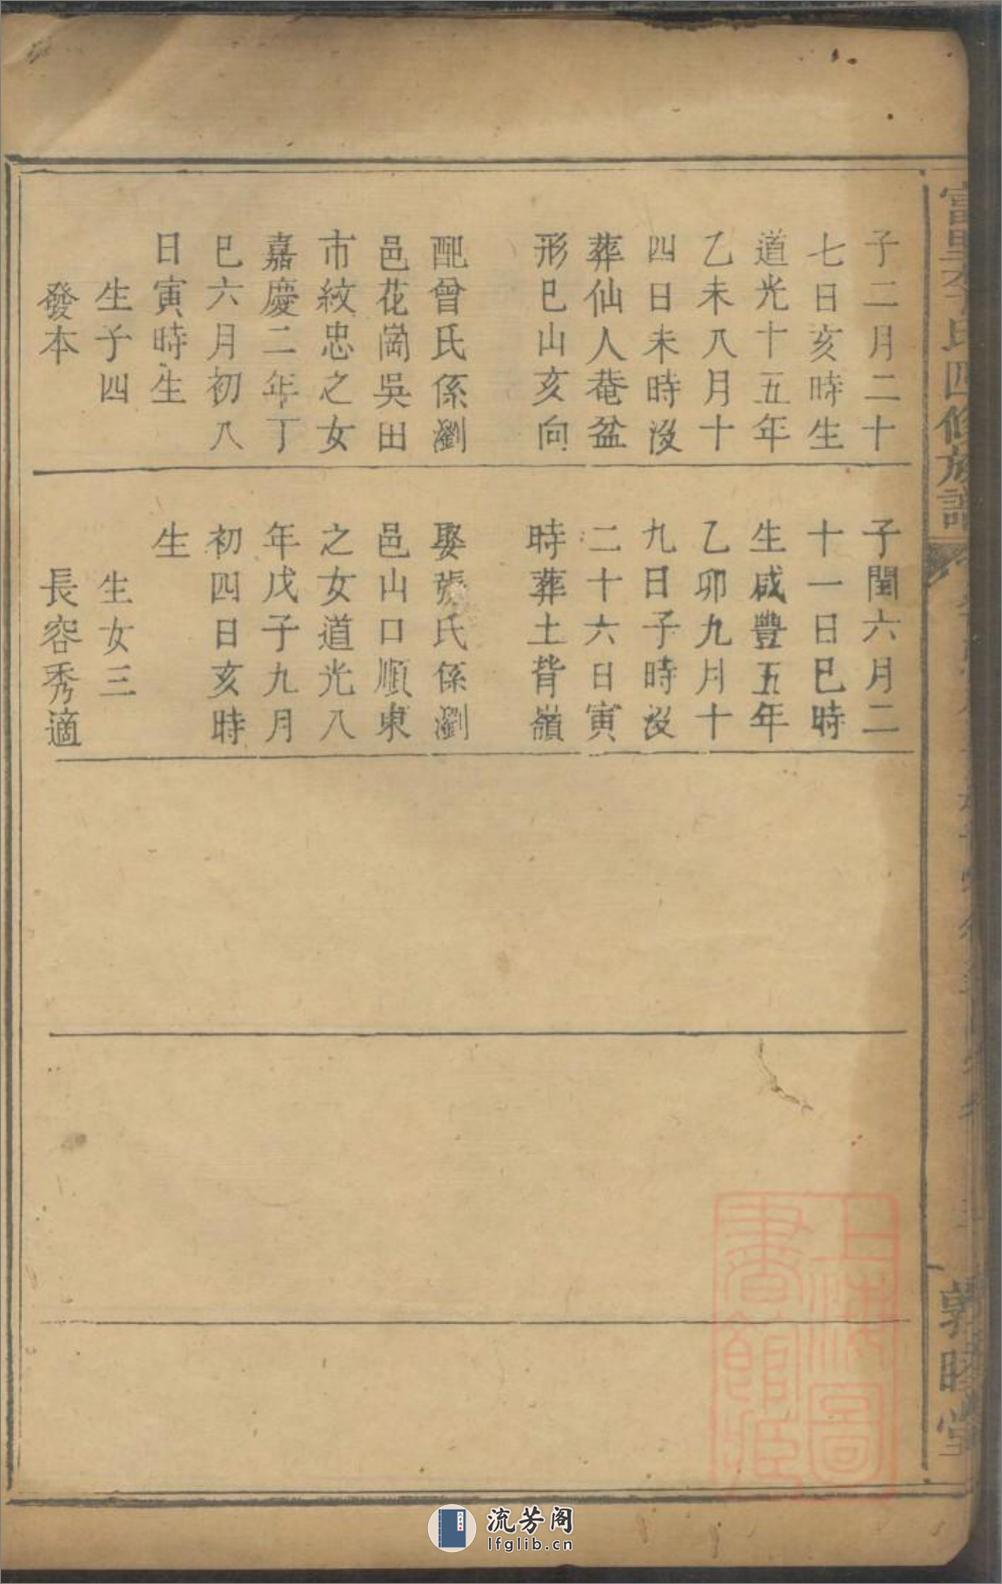 子二月二十
七日亥時生
道光十五年
乙未八月十
四日未時沒
葬仙人菴盆
形巳山亥向
配曾氏係瀏
邑花崗吳田
市紋忠之女
嘉慶二年丁
巳六月初八
日寅時生
生子四
發本
子閏六月二
十一日巳時
生咸豐五年
乙卯九月十
九日子時沒
二十六日寅
時葬土背嶺
娶張氏係瀏
邑山口順東
之女道光八
年戊子九月
初四日亥時
生
生女三
長容秀適
氏四修族譜
敦睦堂
上海圖
書館藏
流芳阁
lfglib.cn